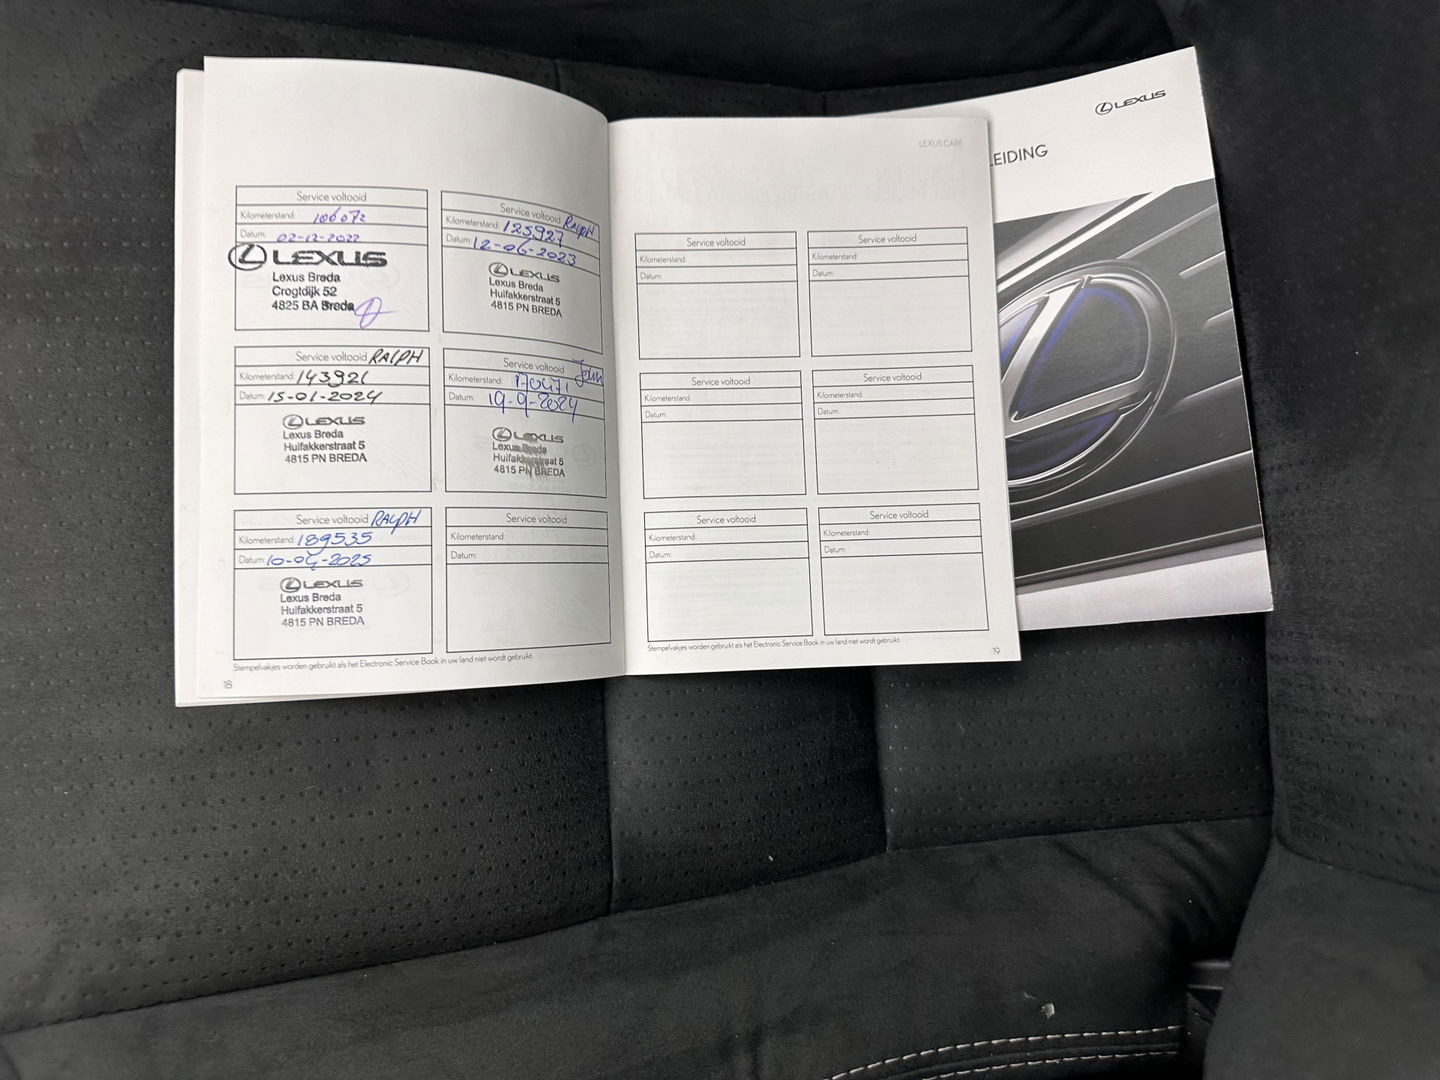 Service voltooid
Kilometerstand: 106072
Datum: 02-12-2022
LEXUS
Lexus Breda
Crogtdijk 52
4825 BA Breda
Service voltooid Ralph
Kilometerstand: 125927
Datum: 12-06-2023
LEXUS
Lexus Breda
Huifakkerstraat 5
4815 PN BREDA
Service voltooid RALPH
Kilometerstand: 143921
Datum: 15-01-2024
LEXUS
Lexus Breda
Huifakkerstraat 5
4815 PN BREDA
Service voltooid
Kilometerstand: 170471
Datum: 19-9-2024
LEXUS
Lexus Breda
Huifakkerstraat 5
4815 PN BREDA
Service voltooid RALPH
Kilometerstand: 189535
Datum: 10-04-2025
LEXUS
Lexus Breda
Huifakkerstraat 5
4815 PN BREDA
Service voltooid
Kilometerstand:
Datum:
Stempelvakjes worden gebruikt als het Electronic Service Book in uw land niet wordt gebruikt.
18
LEXUS CARE
Service voltooid
Kilometerstand:
Datum:
Service voltooid
Kilometerstand:
Datum:
Service voltooid
Kilometerstand:
Datum:
Service voltooid
Kilometerstand:
Datum:
Service voltooid
Kilometerstand:
Datum:
Service voltooid
Kilometerstand:
Datum:
Stempelvakjes worden gebruikt als het Electronic Service Book in uw land niet wordt gebruikt.
19
LEXUS
LEIDING